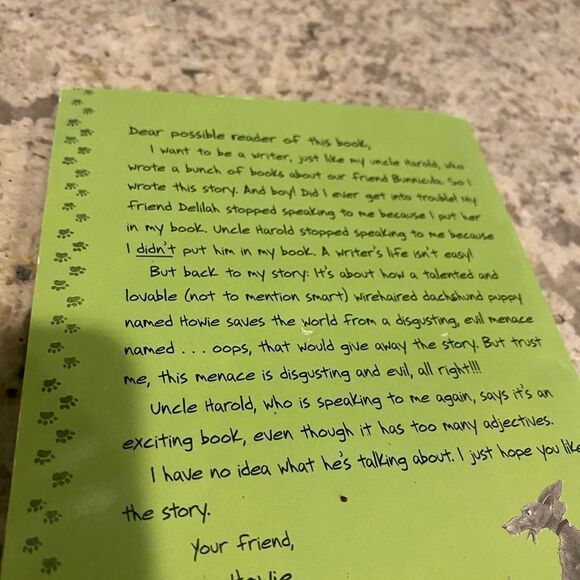 Dear possible reader of this book,
I want to be a writer, just like my uncle Harold, who
wrote a bunch of books about our friend Bunnicula. So I
wrote this story. And boy! Did I ever get into trouble! My
friend Delilah stopped speaking to me because I put her
in my book. Uncle Harold stopped speaking to me because
I didn't put him in my book. A writer's life isn't easy!
But back to my story: It's about how a talented and
lovable (not to mention smart) wirehaired dachshund puppy
named Howie saves the world from a disgusting, evil menace
named . . . oops, that would give away the story. But trust
me, this menace is disgusting and evil, all right!!!
Uncle Harold, who is speaking to me again, says it's an
exciting book, even though it has too many adjectives.
I have no idea what he's talking about. I just hope you like
the story.
Your friend,
Howie